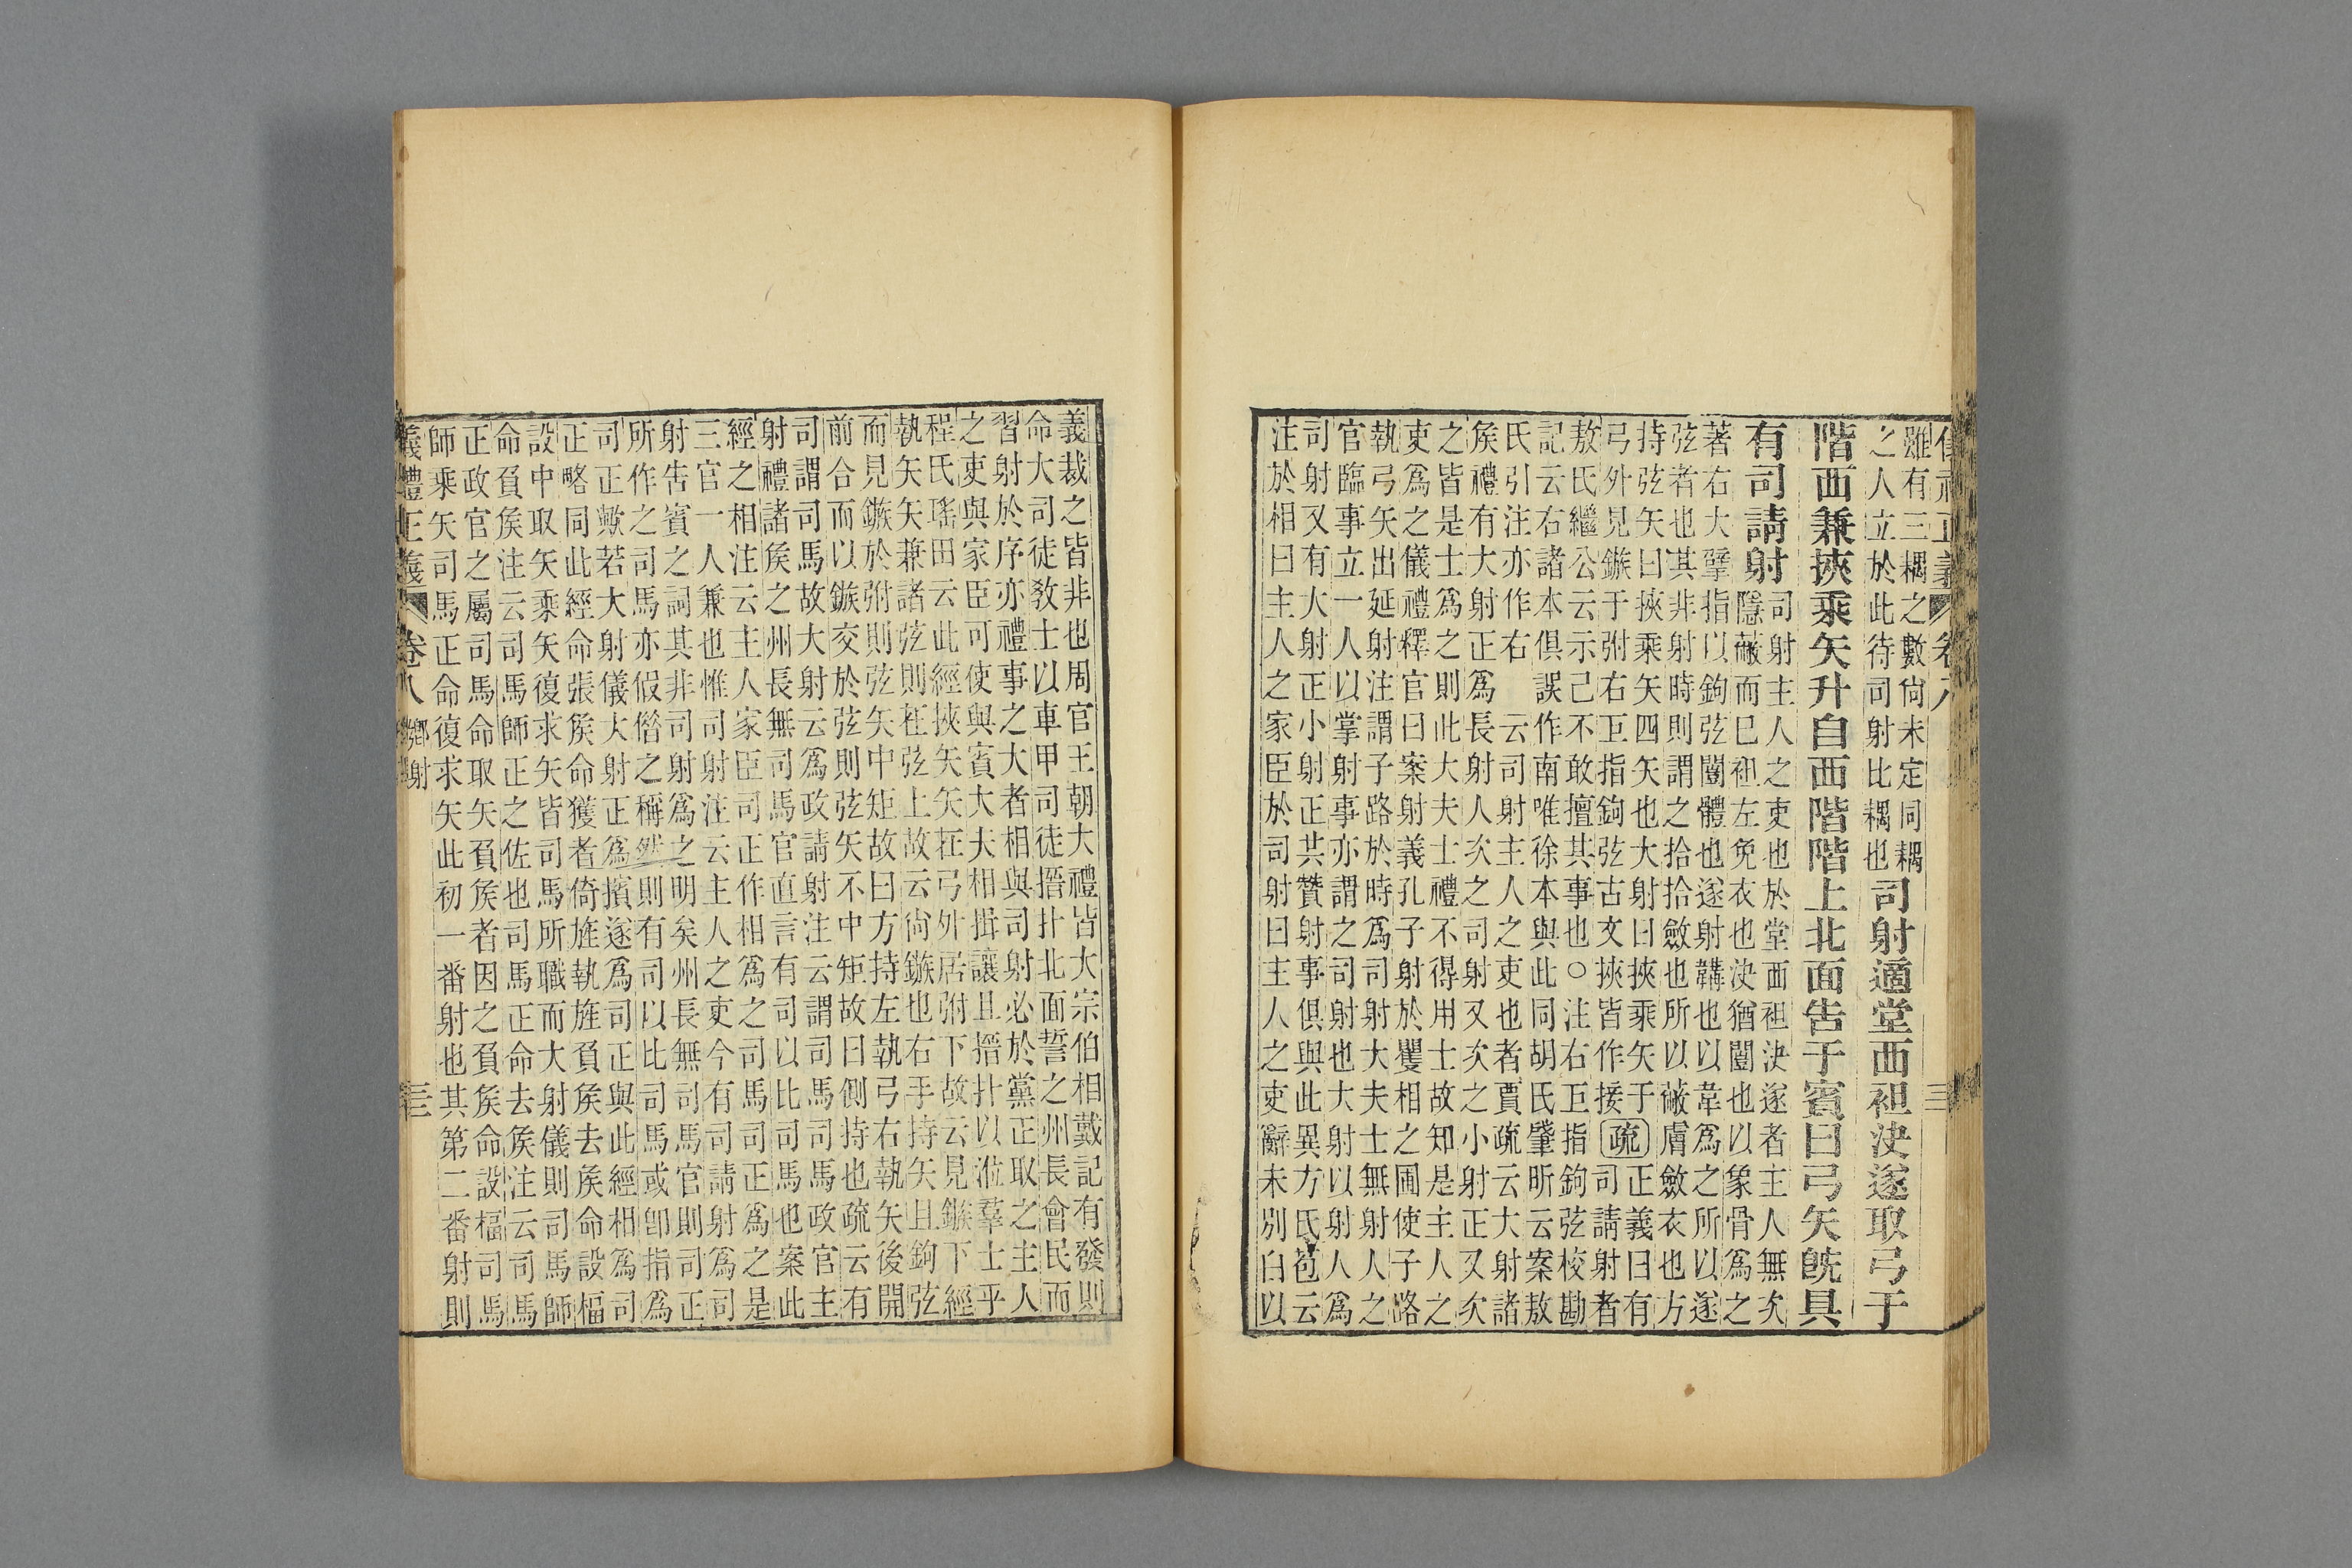 雖有三耦之數尙未定同耦
之人立於此待司射比耦也
司射適堂西袒決遂取弓于
階西兼挾乘矢升自西階階上北面告于賓曰弓矢旣具
有司請射
司射主人之吏也於堂西袒決遂者主人無次
隱蔽而已袒左免衣也決猶闓也以象骨爲之
著右大擘指以鉤弦闓體也遂射韝也以韋爲之所以遂
弦者也其非射時則謂之拾拾斂也所以蔽膚斂衣也方
持弦矢曰挾乘矢四矢也大射曰挾乘矢于
弓外見鏃于弣右巨指鉤弦古文挾皆作接
疏
正義曰有
司請射者
敖氏繼公云示己不敢擅其事也○注右巨指鉤弦校勘
記云右諸本俱誤作南唯徐本與此同胡氏肇昕云案敖
氏引注亦作右 云司射主人之吏也者賈疏云大射諸
矦禮有大射正爲長射人次之司射又次之小射正又次
之皆是士爲之則此大夫士禮不得用士故知是主人之
吏爲之儀禮釋官曰案射義孔子射於矍相之圃使子路
執弓矢出延射注謂子路於時爲司射大夫士無射人之
官臨事立一人以掌射事亦謂之司射也大射以射人爲
司射又有大射正小射正共贊射事俱與此異方氏苞云
注於相曰主人之家臣於司射曰主人之吏辭未別白以
義裁之皆非也周官王朝大禮皆大宗伯相戴記有發則
命大司徒敎士以車甲司徒搢扑北面誓之州長會民而
習射於序亦禮事之大者相與司射必於黨正取之主人
之吏與家臣可使與賓大夫相揖讓且搢扑以涖羣士乎
程氏瑤田云此經挾矢矢在弓外居弣下故云見鏃下經
執矢矢兼諸弦則在弦上故云尙鏃也右手持矢且鉤弦
而見鏃於弣則弦矢中矩故曰方持左執弓右執矢後開
前合而以鏃交於弦則弦矢不中矩故曰側持也疏云有
司謂司馬故大射云爲政請射注云謂司馬司馬政官主
射禮諸矦之州長無司馬官直言有司以比司馬也案此
經之相注云主人家臣司正作相爲之司馬司正爲之是
三官一人兼也惟司射注云主人之吏今有司請射爲司
射告賓之詞其非司射爲之明矣州長無司馬官則司正
所作之司馬亦假偺之稱然則有司以比司馬或卽指爲
司正歟若大射儀大射正爲擯遂爲司正與此經相爲司
正略同此經命張矦命獲者倚旌執旌負矦去矦命設楅
設中取矢乘矢復求矢皆司馬所職而大射儀則司馬師
命負矦注云司馬師正之佐也司馬正命去矦注云司馬
正政官之屬司馬命取矢負矦者因之負矦命設楅司馬
師乘矢司馬正命復求矢此初一番射也其第二番射則
義禮正義 卷八 鄉射 三